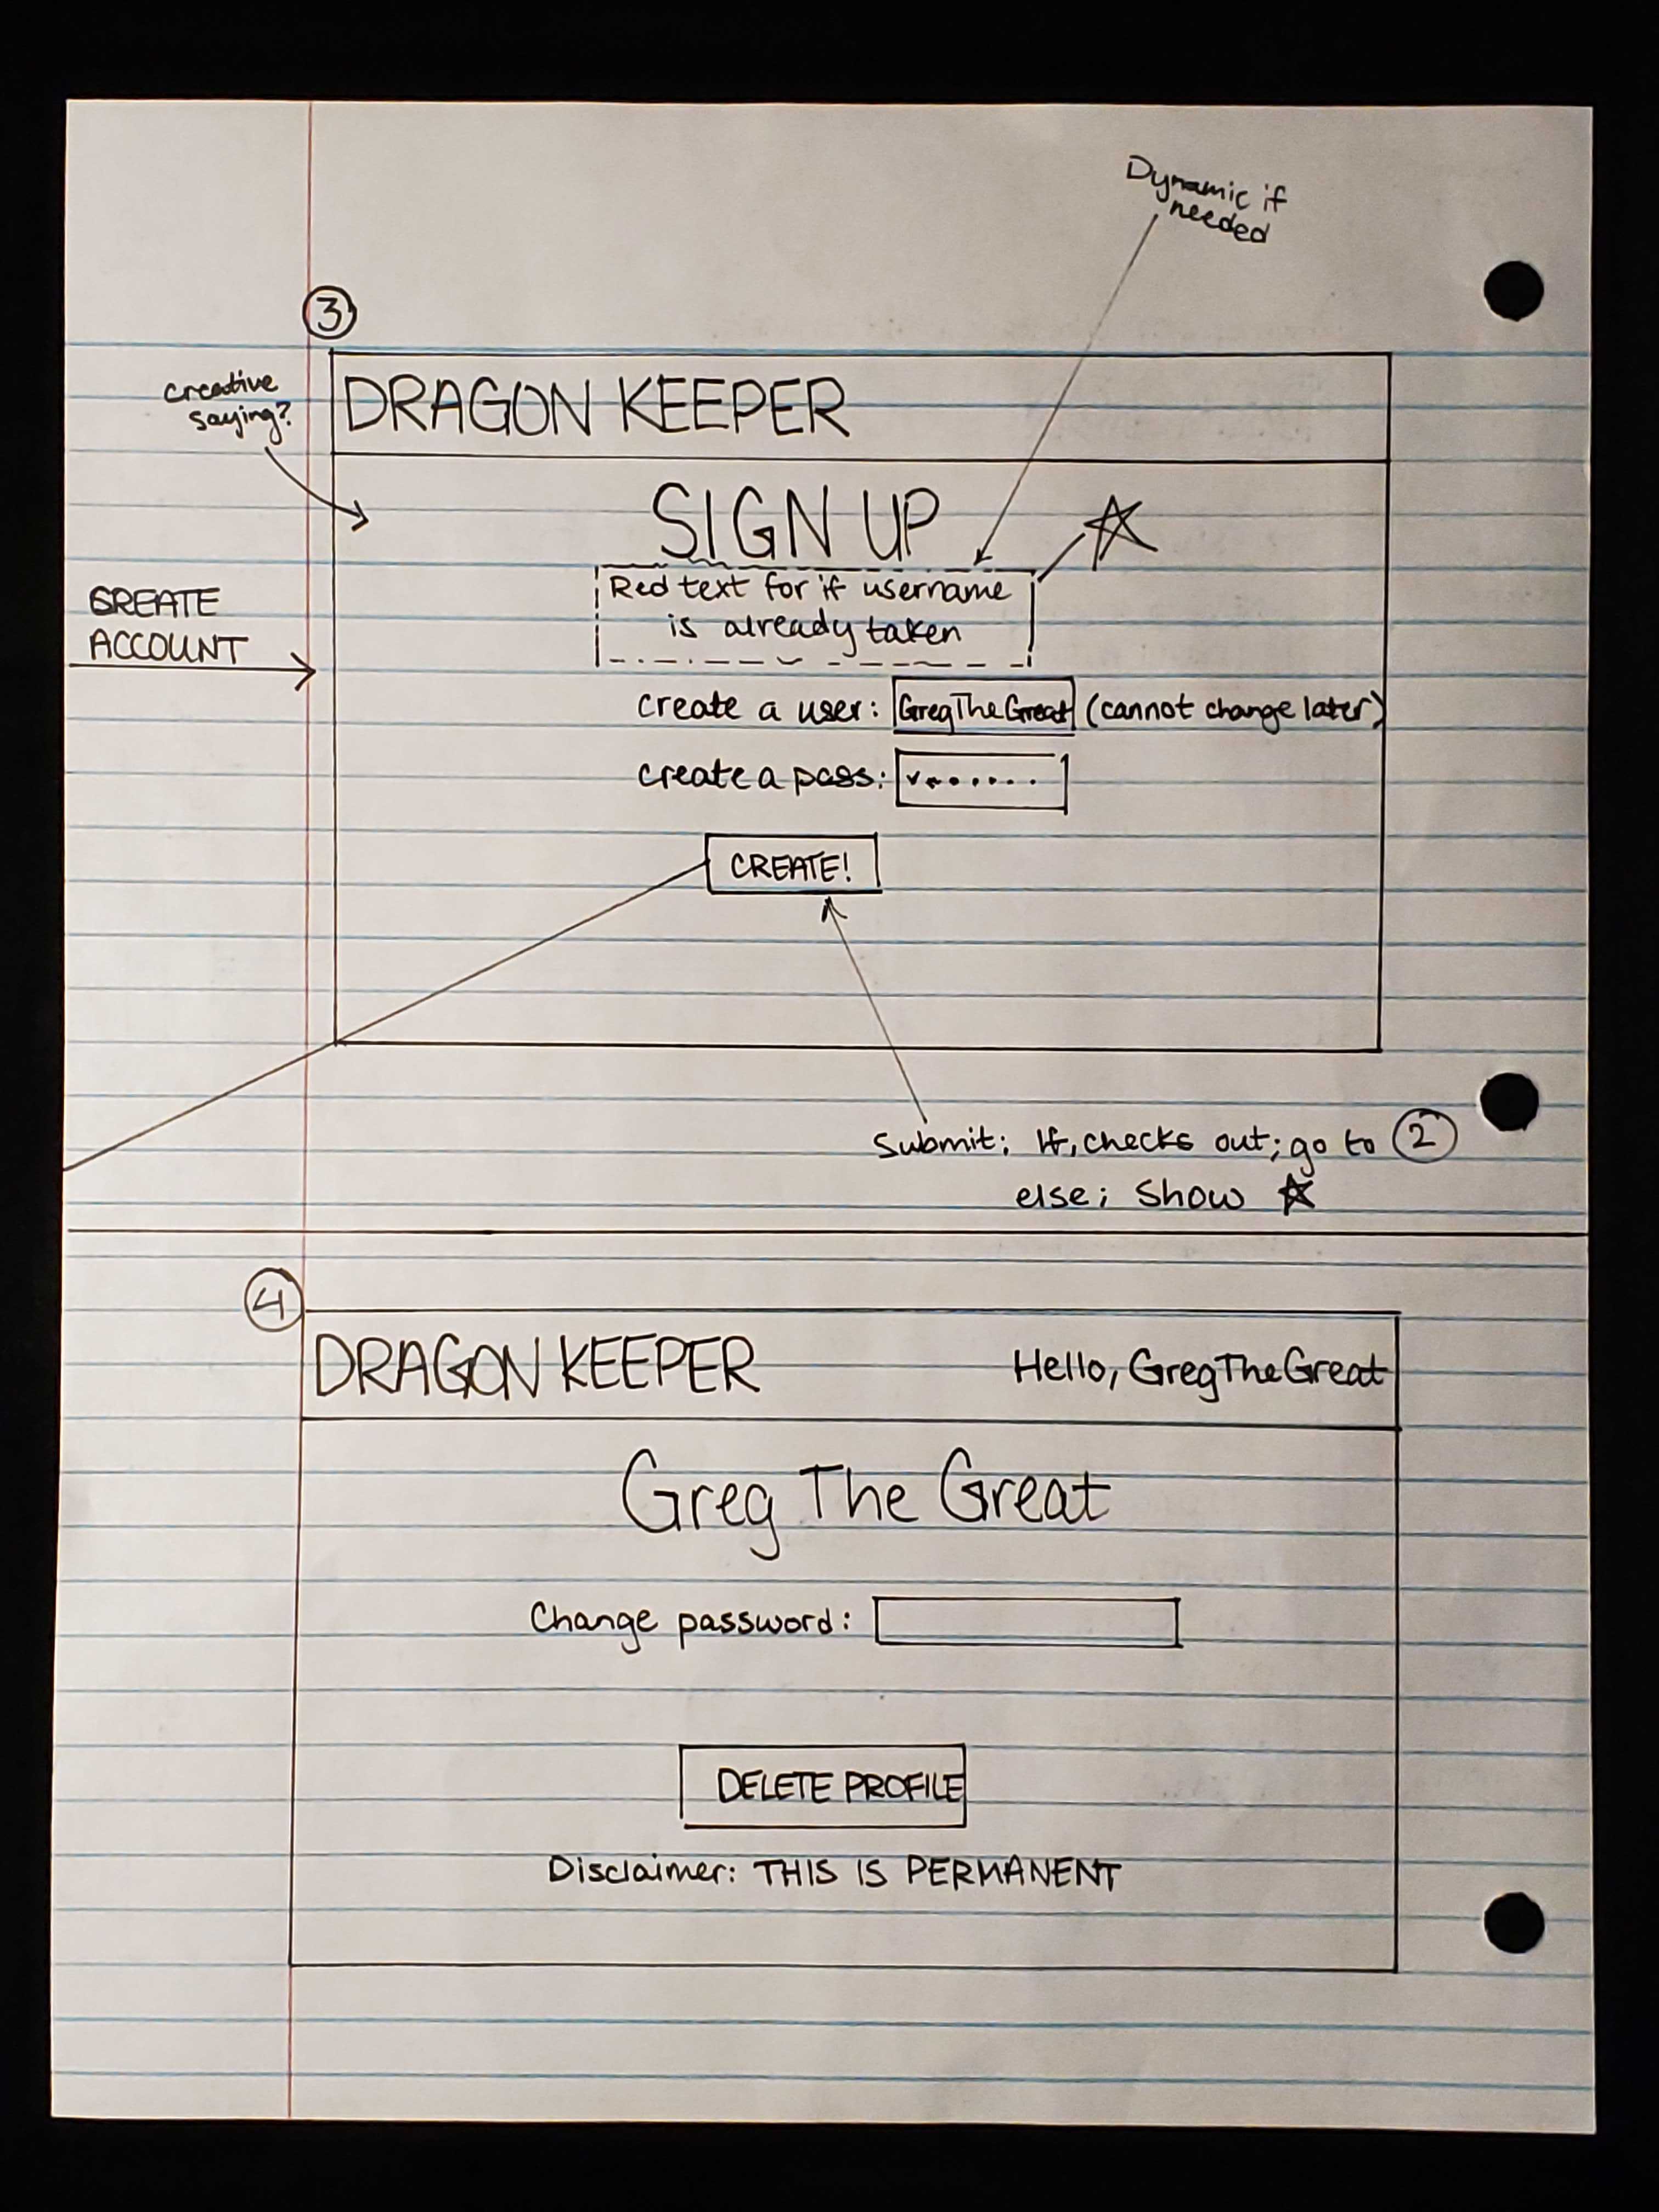 Dynamic if
needed
3
creative
saying?
DRAGON KEEPER
SIGN UP
Red text for if username
is already taken
CREATE
ACCOUNT
create a user: GregTheGreat (cannot change later)
create a pass:
CREATE!
Submit: If, checks out; go to 2
else; show
4
DRAGON KEEPER Hello, GregTheGreat
Greg The Great
Change password:
DELETE PROFILE
Disclaimer: THIS IS PERMANENT